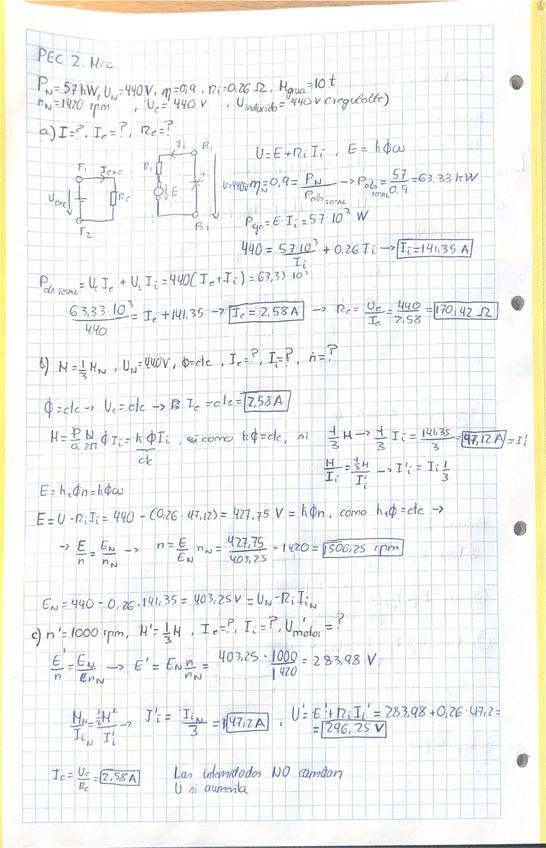 PEC 2. Mcc
P_N=57kW, U_N=440V, η=0,9, r_i=0.26 Ω, M_grua=10 t
n_N=1420 rpm, U_e=440 V, U_inducido=440 V (regulable)
a) I=?, I_e=?, R_e=?
F_1 I_exc U_exc R_e F_2
R_i I_i B_1 E B_2 U=440V
U=E+R_i I_i, E=kϕω
η_N=0,9=P_N/P_abs TOTAL → P_abs TOTAL=57/0.9=63,33 kW
P_giro=E·I_i=57·10³ W
440=57·10³/I_i+0.26 I_i → I_i=141.35 A
P_abs TOTAL=U_e I_e+U_i I_i=440(I_e+I_i)=63,33·10³
63,33·10³/440=I_e+141.35 → I_e=2,58A → R_e=U_e/I_e=440/2.58=170,42 Ω
b) M=1/3 M_N, U_N=440V, ϕ=cte, I_e=?, I_i=?, n=?
ϕ=cte → U_e=cte → I_e=cte=2,58A
M=P/a N/2π ϕ I_i=kϕI_i, si como kϕ=cte, si 1/3 M → 1/3 I_i=141.35/3=47,12A=I_i'
cte
M/I_i=1/3M/I_i' → I'_i=I_i 1/3
E=k,ϕn=kϕω
E=U-R_i I_i=440-(0,26·47,12)=427,75 V=kϕn, como k,ϕ=cte →
→ E/n=E_N/n_N → n=E/E_N n_N=427,75/403,25·1420=1506,25 rpm
E_N=440-0,26·141.35=403,25V=U_N-R_i I_iN
c) n'=1000 rpm, M'=1/3 M, I_e=?, I_i=?, U'_motor=?
E'/n'=E_N/n_N → E'=E_N n/n_N=403,25·1000/1420=283,98 V
M_N/I_iN=1/3M/I'_i → I'_i=I_iN/3=47,2A, U'=E'+R_i I_i'=283,98+0,26·47,2=
=296,25V
I_e=U_e/R_e=2,58A Las intensidades NO cambian
U si aumenta